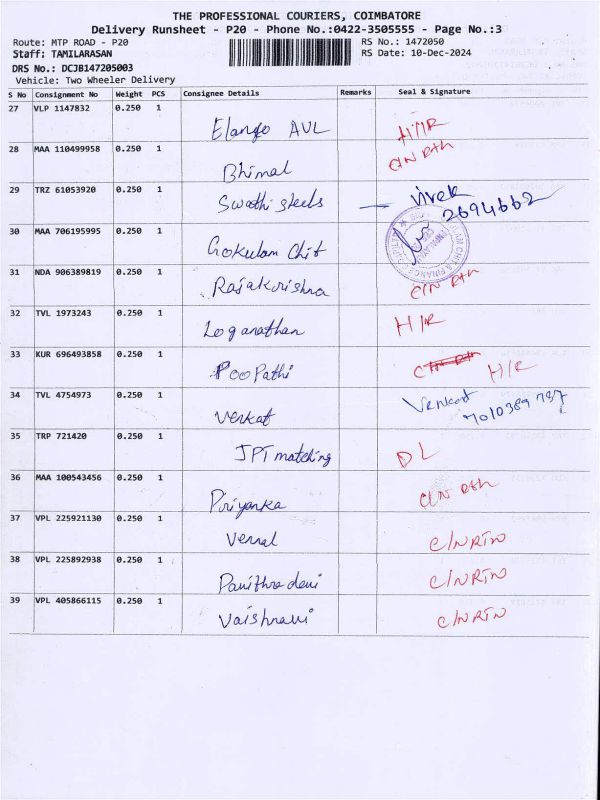 THE PROFESSIONAL COURIERS, COIMBATORE
Delivery Runsheet - P20 - Phone No.:0422-3505555 - Page No.:3
Route: MTP ROAD - P20 RS No.: 1472050
Staff: TAMILARASAN RS Date: 10-Dec-2024
DRS No.: DCJB147205003
Vehicle: Two Wheeler Delivery
S No Consignment No Weight PCS Consignee Details Remarks Seal & Signature
27 VLP 1147832 0.250 1
Elango AVL H/R
28 MAA 110499958 0.250 1
Bhimal C/N Rtn
29 TRZ 61053920 0.250 1
Swathi steels Vivek
2694662
30 MAA 706195995 0.250 1
Gokulam Chit
31 NDA 906389819 0.250 1
Rajakrishna C/N Rtn
32 TVL 1973243 0.250 1
Loganathan H/R
33 KUR 696493858 0.250 1
Poo Pathi H/R
34 TVL 4754973 0.250 1
Venkat Venkat
35 TRP 721420 0.250 1
JPT matching DL
36 MAA 100543456 0.250 1
Priyanka C/N Rtn
37 VPL 225921130 0.250 1
Vernal C/NRTN
38 VPL 225892938 0.250 1
Pavithra devi C/NRTN
39 VPL 405866115 0.250 1
Vaishnavi C/NRTN